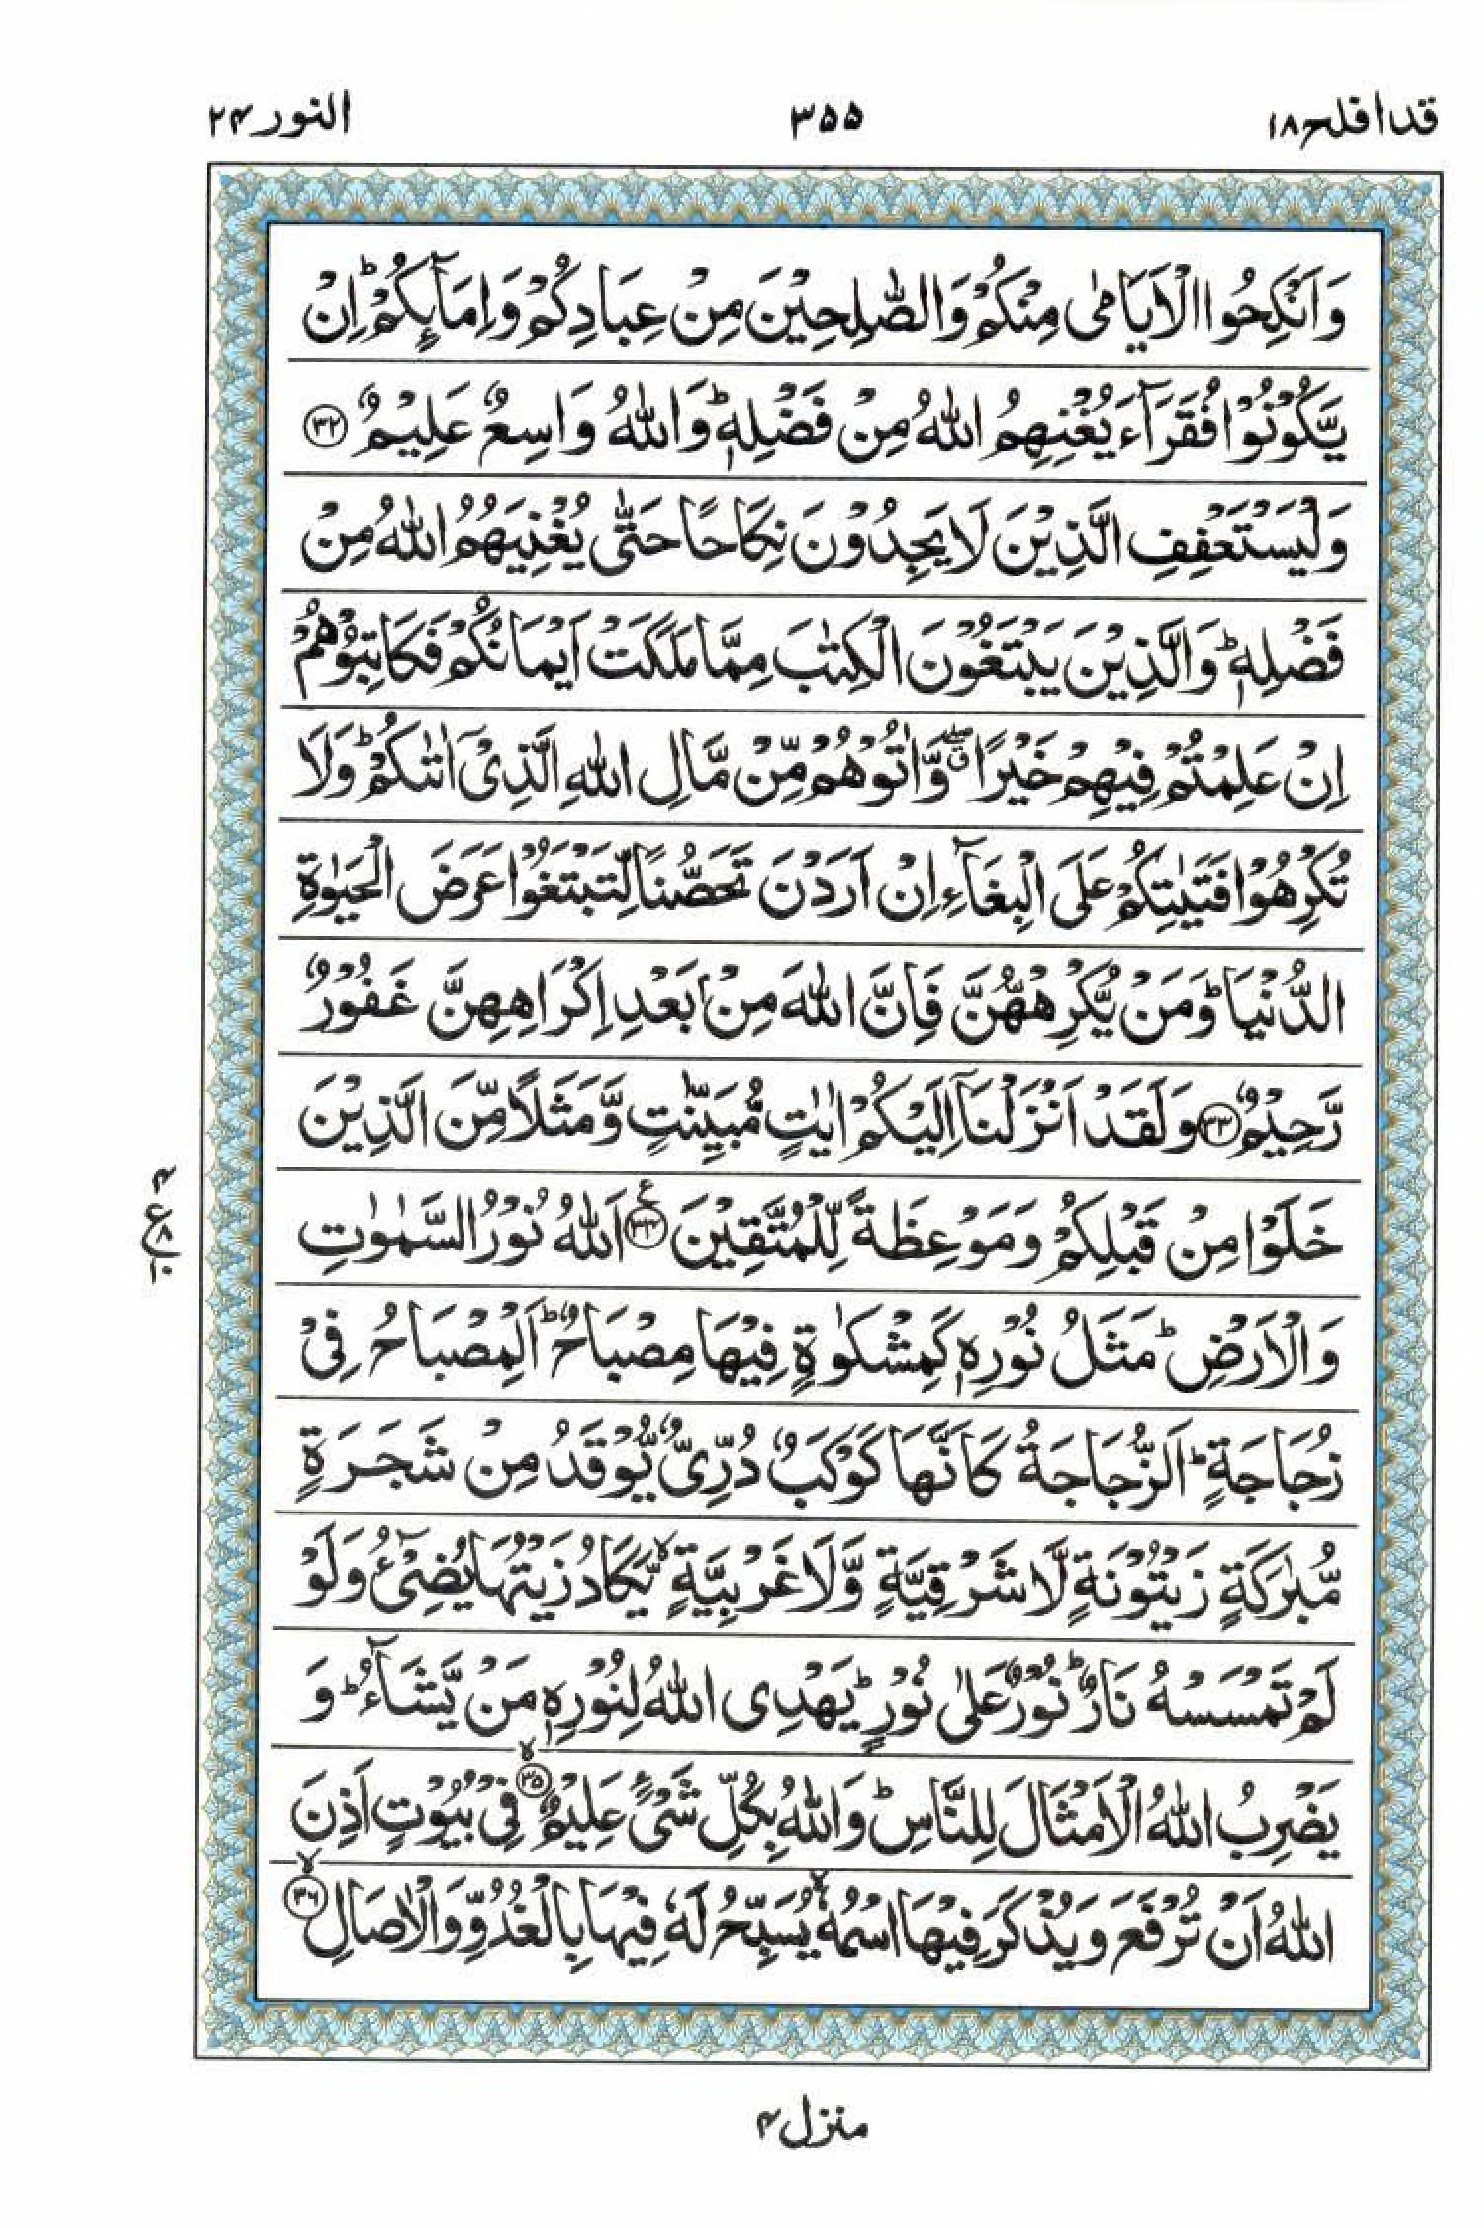 قد افلح ١٨
٣٥٥
النور ٢٤
وَاَنْكِحُوا الْاَيَامٰى مِنْكُمْ وَالصّٰلِحِيْنَ مِنْ عِبَادِكُمْ وَاِمَآىِٕكُمْ ؕ اِنْ
يَّكُوْنُوْا فُقَرَآءَ يُغْنِهِمُ اللّٰهُ مِنْ فَضْلِهٖ ؕ وَاللّٰهُ وَاسِعٌ عَلِيْمٌ ﴿٣٢﴾
وَلْيَسْتَعْفِفِ الَّذِيْنَ لَا يَجِدُوْنَ نِكَاحًا حَتّٰى يُغْنِيَهُمُ اللّٰهُ مِنْ
فَضْلِهٖ ؕ وَالَّذِيْنَ يَبْتَغُوْنَ الْكِتٰبَ مِمَّا مَلَكَتْ اَيْمَانُكُمْ فَكَاتِبُوْهُمْ
اِنْ عَلِمْتُمْ فِيْهِمْ خَيْرًا ۖ ق وَّاٰتُوْهُمْ مِّنْ مَّالِ اللّٰهِ الَّذِىْٓ اٰتٰىكُمْ ؕ وَلَا
تُكْرِهُوْا فَتَيٰتِكُمْ عَلَى الْبِغَآءِ اِنْ اَرَدْنَ تَحَصُّنًا لِّتَبْتَغُوْا عَرَضَ الْحَيٰوةِ
الدُّنْيَا ؕ وَمَنْ يُّكْرِهْهُّنَّ فَاِنَّ اللّٰهَ مِنْۢ بَعْدِ اِكْرَاهِهِنَّ غَفُوْرٌ
رَّحِيْمٌ ﴿٣٣﴾ وَلَقَدْ اَنْزَلْنَآ اِلَيْكُمْ اٰيٰتٍ مُّبَيِّنٰتٍ وَّمَثَلًا مِّنَ الَّذِيْنَ
خَلَوْا مِنْ قَبْلِكُمْ وَمَوْعِظَةً لِّلْمُتَّقِيْنَ ﴿٣٤﴾ ع اَللّٰهُ نُوْرُ السَّمٰوٰتِ
وَالْاَرْضِ ؕ مَثَلُ نُوْرِهٖ كَمِشْكٰوةٍ فِيْهَا مِصْبَاحٌ ؕ اَلْمِصْبَاحُ فِىْ
زُجَاجَةٍ ؕ اَلزُّجَاجَةُ كَاَنَّهَا كَوْكَبٌ دُرِّىٌّ يُّوْقَدُ مِنْ شَجَرَةٍ
مُّبٰرَكَةٍ زَيْتُوْنَةٍ لَّا شَرْقِيَّةٍ وَّلَا غَرْبِيَّةٍ ۙ يَّكَادُ زَيْتُهَا يُضِىْٓءُ وَلَوْ
لَمْ تَمْسَسْهُ نَارٌ ؕ نُوْرٌ عَلٰى نُوْرٍ ؕ يَهْدِى اللّٰهُ لِنُوْرِهٖ مَنْ يَّشَآءُ ؕ وَ
يَضْرِبُ اللّٰهُ الْاَمْثَالَ لِلنَّاسِ ؕ وَاللّٰهُ بِكُلِّ شَىْءٍ عَلِيْمٌ ﴿٣٥﴾ ۙ فِىْ بُيُوْتٍ اَذِنَ
اللّٰهُ اَنْ تُرْفَعَ وَيُذْكَرَ فِيْهَا اسْمُهٗ ۙ يُسَبِّحُ لَهٗ فِيْهَا بِالْغُدُوِّ وَالْاٰصَالِ ﴿٣٦﴾ ۙ
٤
ع ٨
١٠
منزل ٤